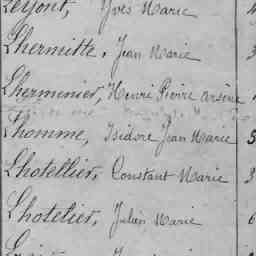 Lejont, Yves Marie 4
Lhermitte, Jean Marie
Lhermenier, Henri Pierre Arsène
Lhomme, Isidore Jean Marie 5
Lhotellier, Constant Marie 3
Lhotelier, Julien Marie 6